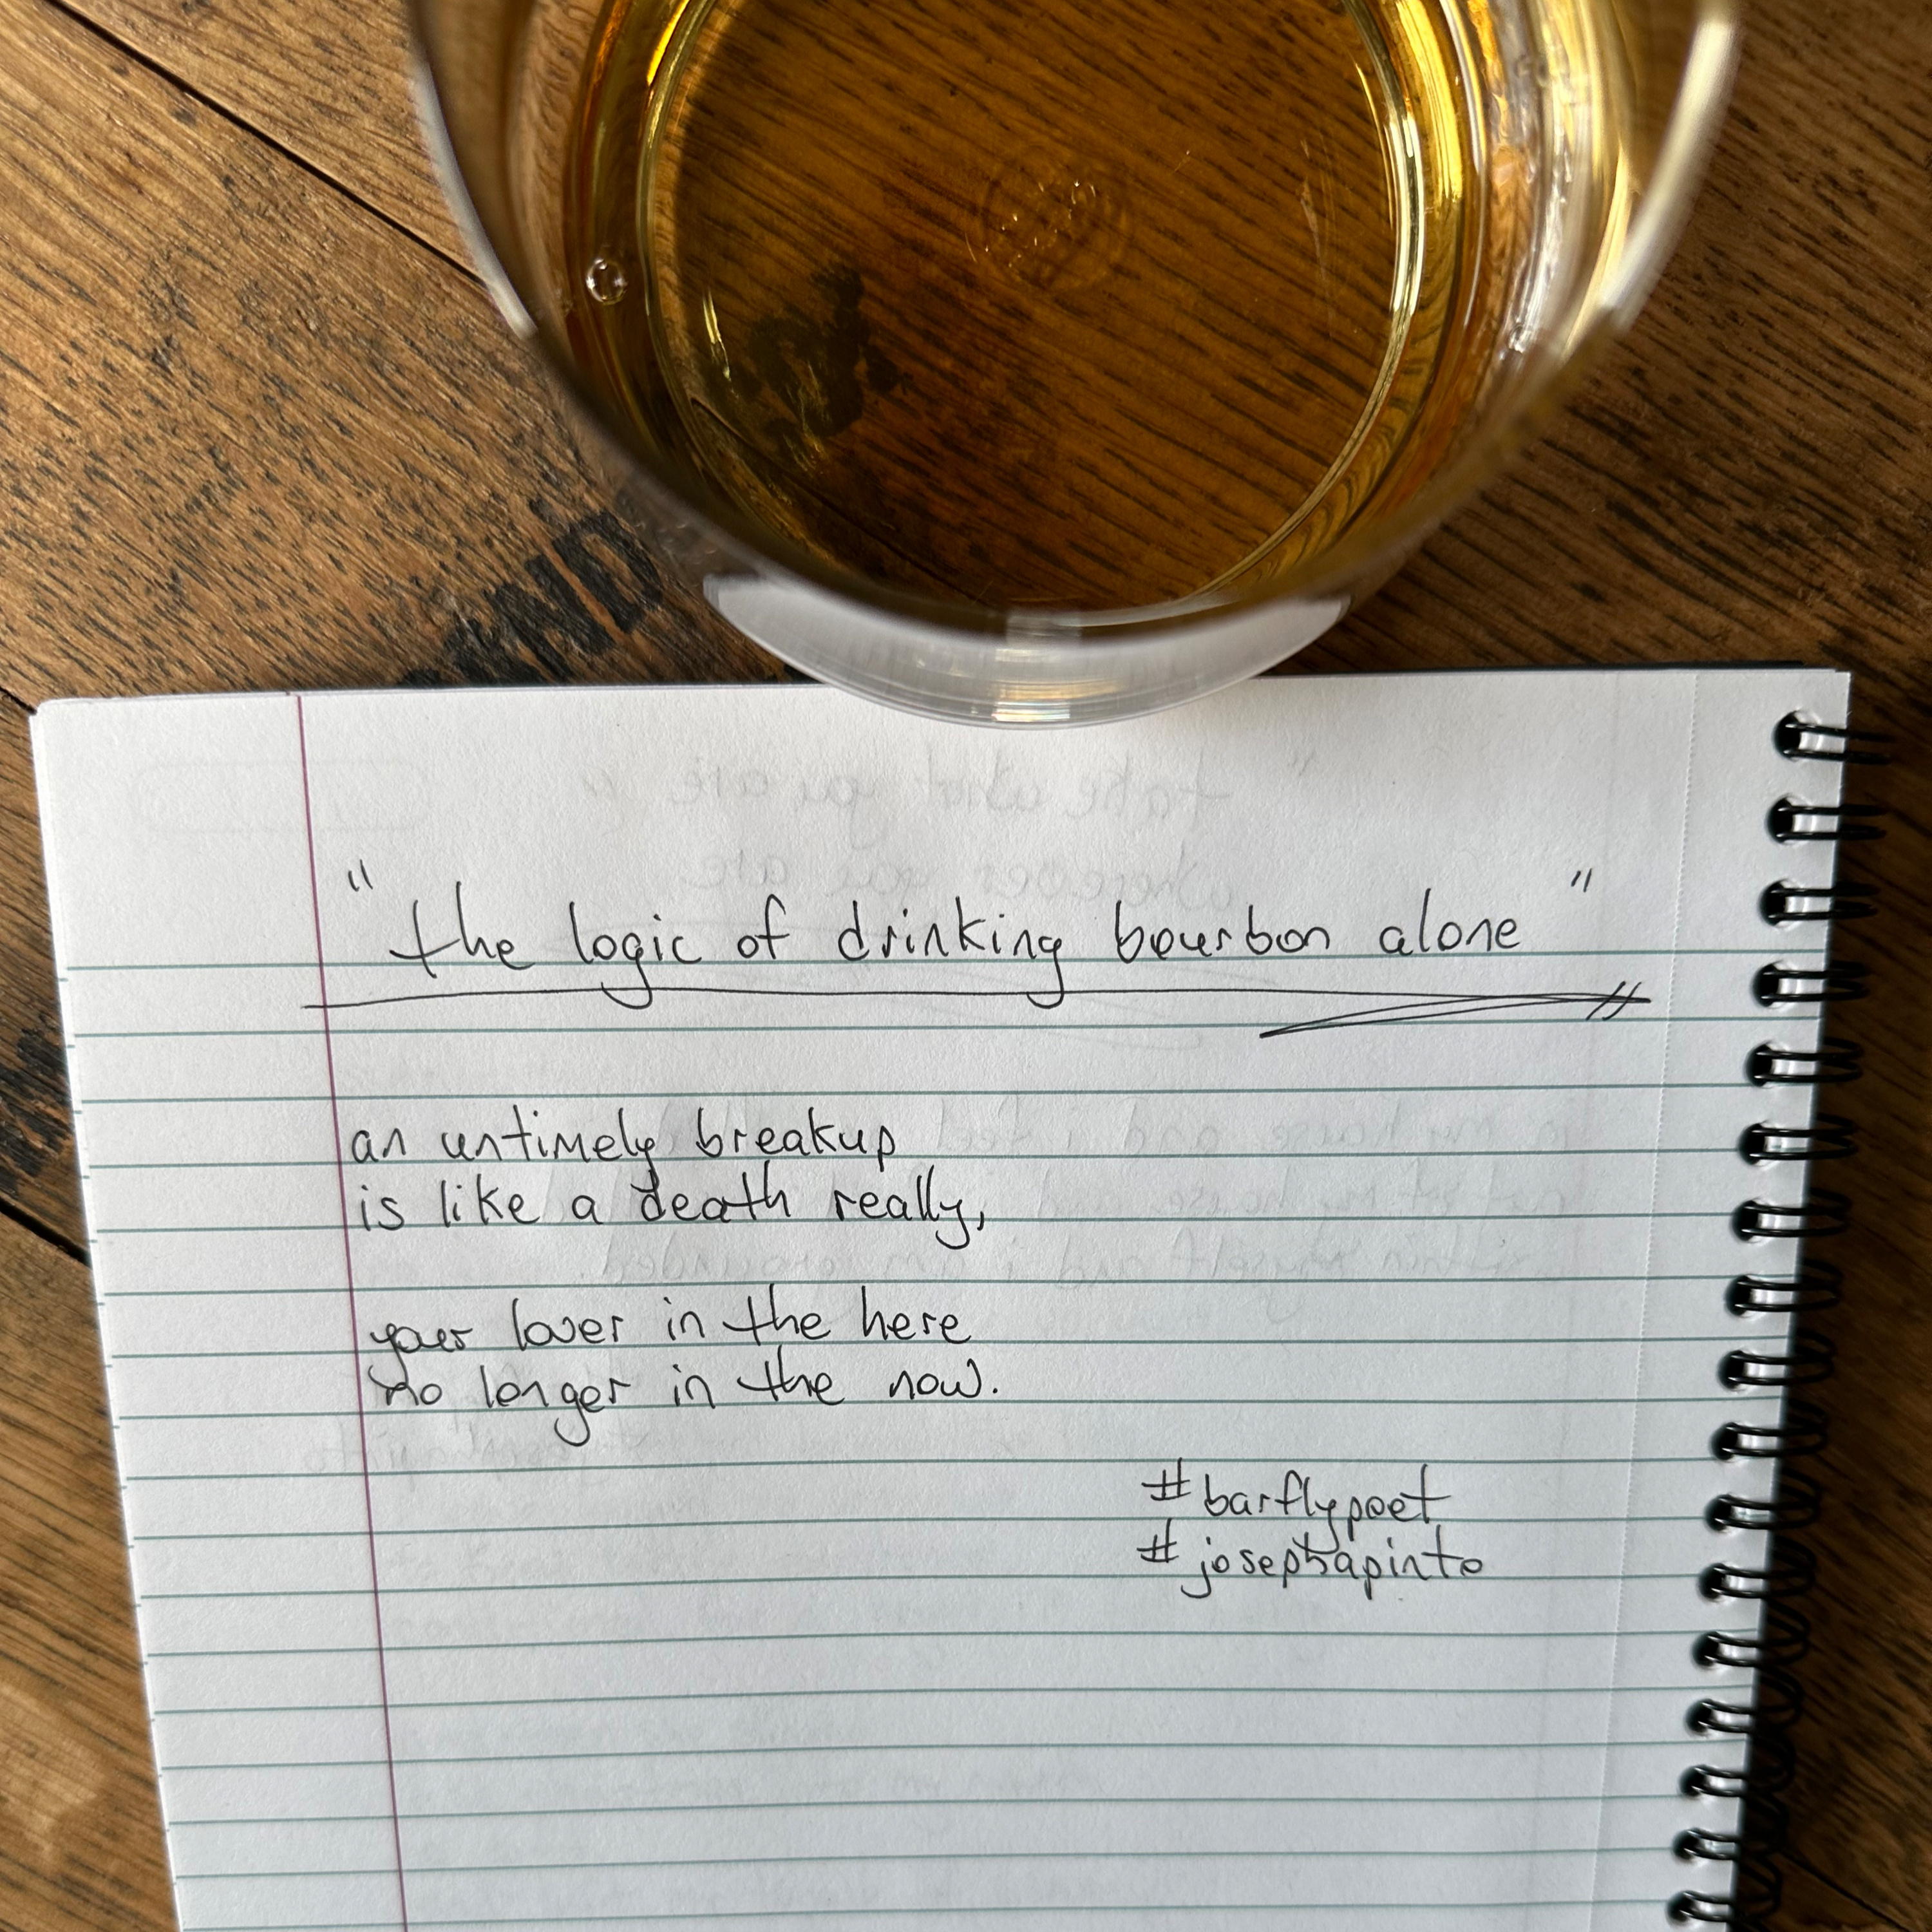 ND
"the logic of drinking bourbon alone"
an untimely breakup
is like a death really,
your lover in the here
no longer in the now.
#barflypoet
#josephapinto